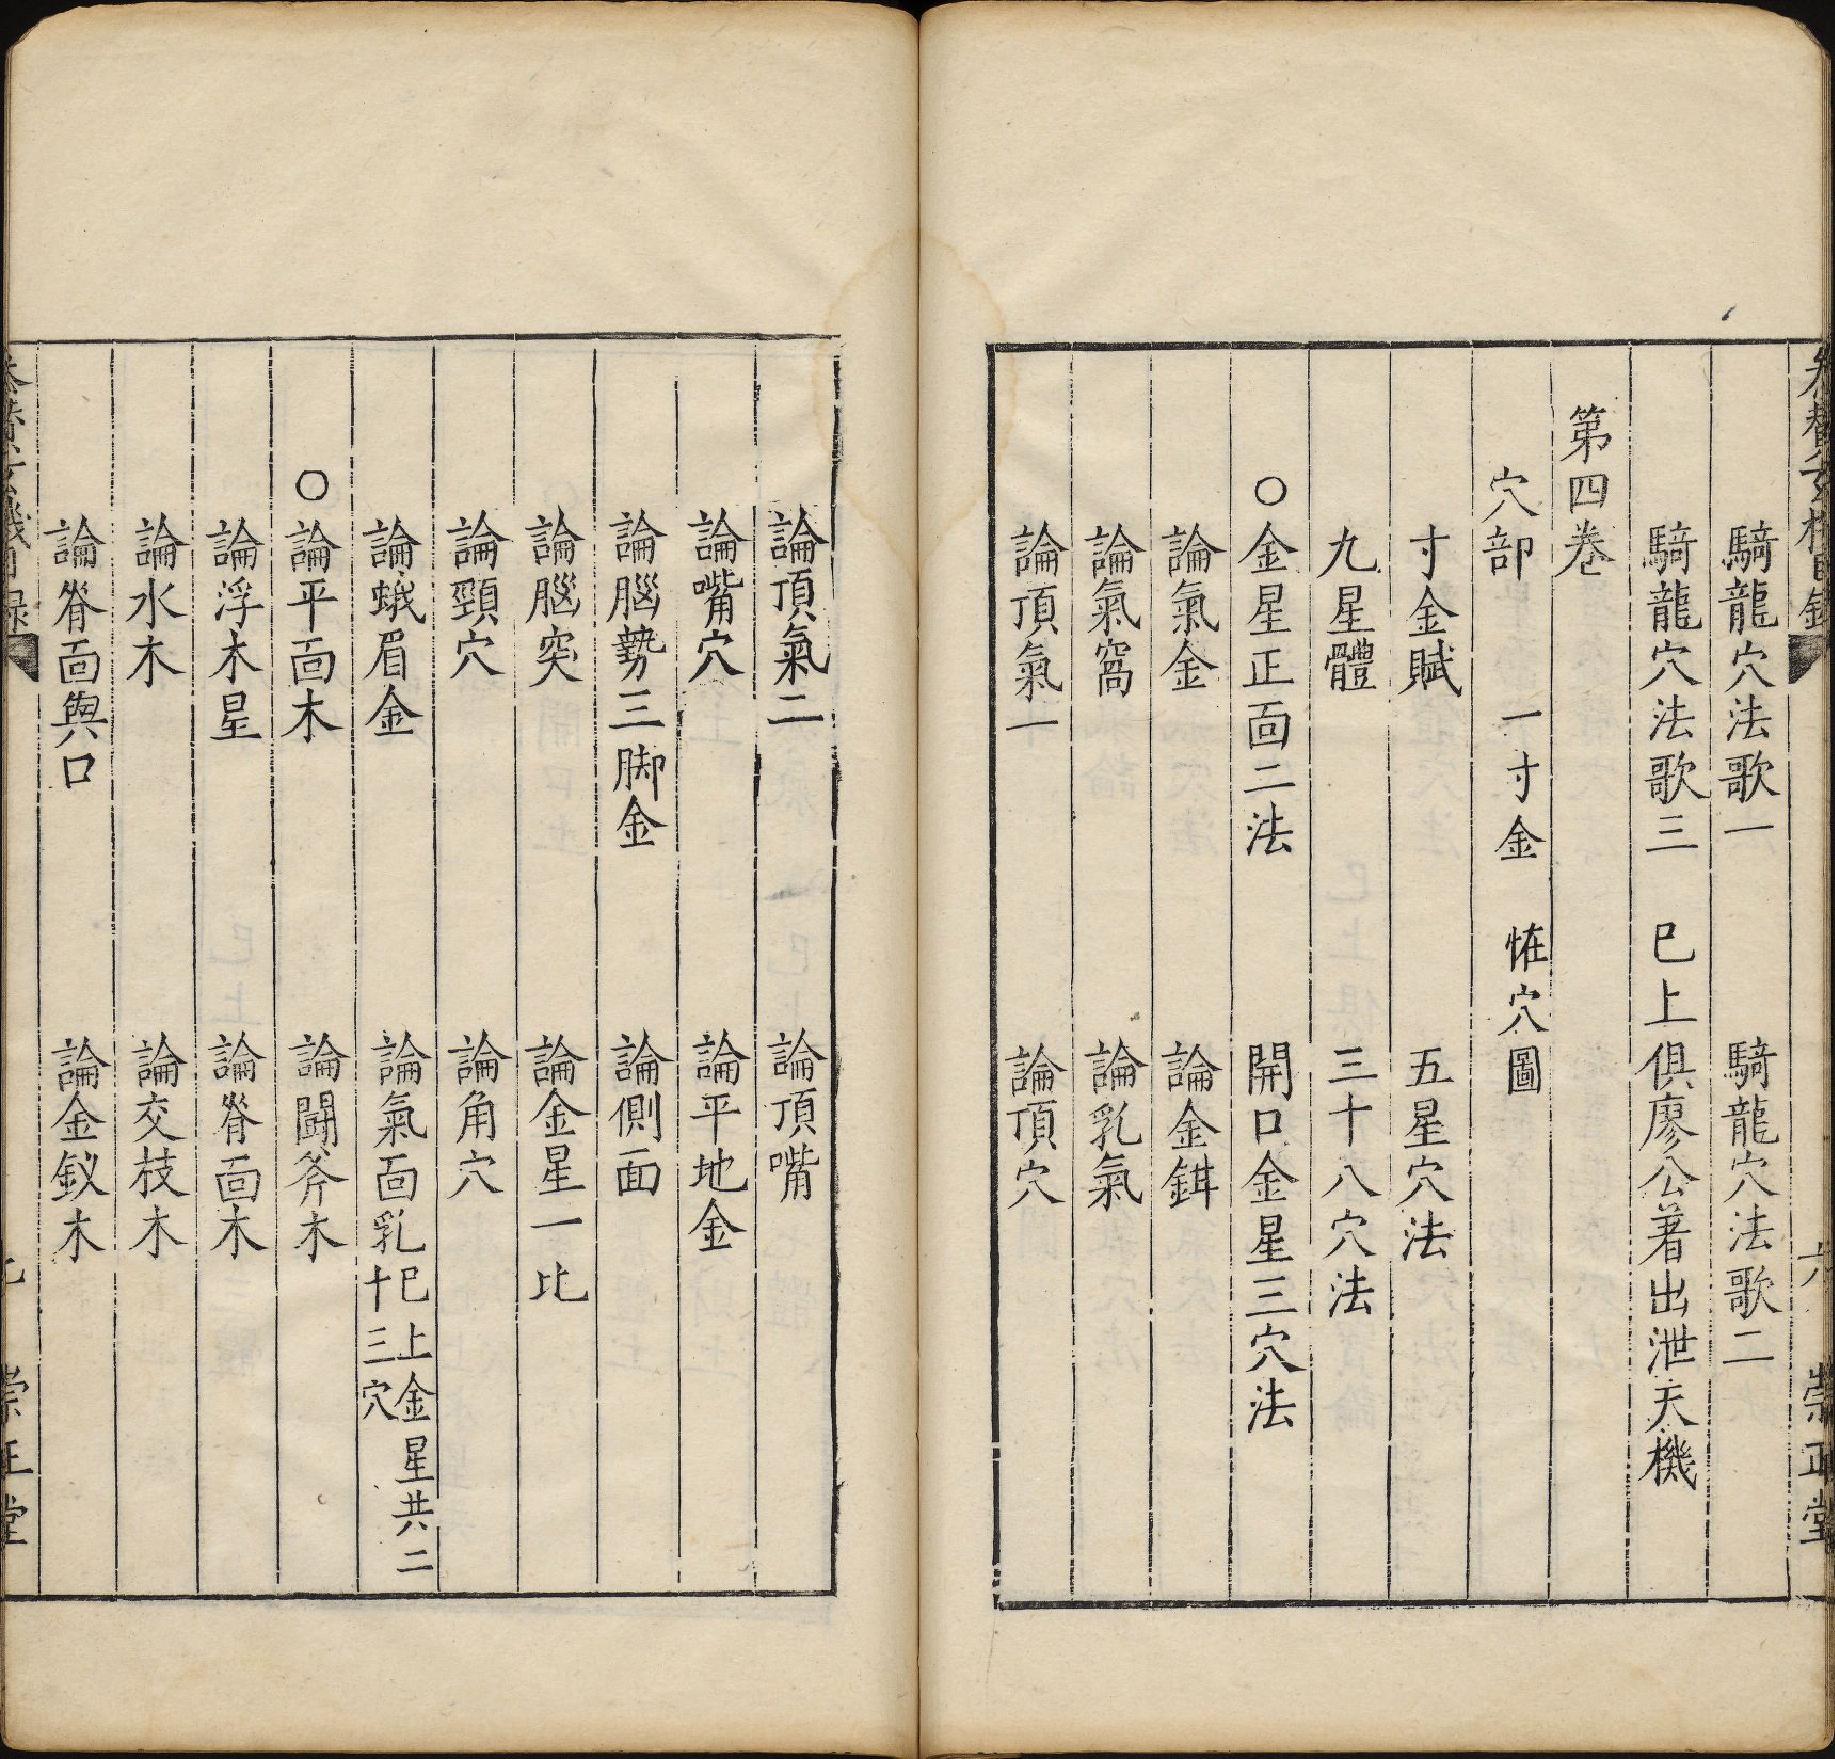 騎龍穴法歌一　騎龍穴法歌二
騎龍穴法歌三　已上俱廖公著出泄天機
第四卷
穴部　一寸金　恠穴圖
寸金賦　五星穴法
九星體　三十八穴法
○金星正面二法　開口金星三穴法
論氣金　論金鉺
論氣窩　論乳氣
論頂氣一　論頂穴
論頂氣二　論頂嘴
論嘴穴　論平地金
論腦勢三脚金　論側面
論腦突　論金星一比
論頸穴　論角穴
論蛾眉金　論氣面乳　已上金星共二十三穴
○論平面木　論鬭斧木
論浮木星　論脊面木
論水木　論交枝木
論脊面與口　論金釵木
崇正堂